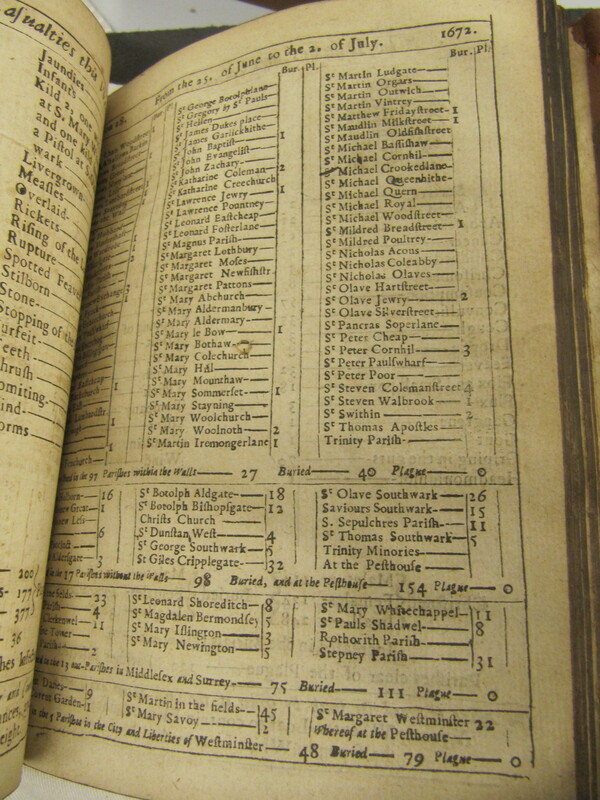 asualties this
Jaundies
Infants
Kild 2, one
at S. Mary
and one
a Pistol at
wark
Livergrown
Meaſles
Overlaid
Rickets
Riſing of the
Rupture
Spotted Feaver
Stilborn
Stone
Stopping of the
Surfeit
Teeth
Thruſh
Vomiting
Wind
Worms
From the 25. of June to the 2. of July. 1672.
Bur. Pl.
Sᵗ George Botolphlane
Sᵗ Gregory by Sᵗ Pauls
Sᵗ Hellen
Sᵗ James Dukes place
Sᵗ James Garlickhithe
Sᵗ John Baptiſt 1
Sᵗ John Evangeliſt
Sᵗ John Zachary
Sᵗ Katharine Coleman 2
Sᵗ Katharine Creechurch
Sᵗ Lawrence Jewry 1
Sᵗ Lawrence Pountney
Sᵗ Leonard Eaſtcheap
Sᵗ Leonard Foſterlane
Sᵗ Magnus Pariſh
Sᵗ Margaret Lothbury
Sᵗ Margaret Moſes
Sᵗ Margaret Newfiſhſtr
Sᵗ Margaret Pattons
Sᵗ Mary Abchurch
Sᵗ Mary Aldermanbury
Sᵗ Mary Aldermary
Sᵗ Mary le Bow 1
Sᵗ Mary Bothaw
Sᵗ Mary Colechurch
Sᵗ Mary Hill
Sᵗ Mary Mounthaw
Sᵗ Mary Sommerſet 1
Sᵗ Mary Stayning
Sᵗ Mary Woolchurch
Sᵗ Mary Woolnoth 2
Sᵗ Martin Iremongerlane 1
Bur. Pl.
Sᵗ Martin Ludgate
Sᵗ Martin Orgars
Sᵗ Martin Outwich
Sᵗ Martin Vintrey
Sᵗ Matthew Fridayſtreet 1
Sᵗ Maudlin Milkſtreet 1
Sᵗ Maudlin Oldfiſhſtreet
Sᵗ Michael Baſſiſhaw
Sᵗ Michael Cornhil
Sᵗ Michael Crookedlane
Sᵗ Michael Queenhithe
Sᵗ Michael Quern
Sᵗ Michael Royal
Sᵗ Michael Woodſtreet
Sᵗ Mildred Breadſtreet 1
Sᵗ Mildred Poultrey
Sᵗ Nicholas Acons
Sᵗ Nicholas Coleabby
Sᵗ Nicholas Olaves
Sᵗ Olave Hartſtreet
Sᵗ Olave Jewry 2
Sᵗ Olave Silverſtreet
Sᵗ Pancras Soperlane
Sᵗ Peter Cheap
Sᵗ Peter Cornhil 3
Sᵗ Peter Paulſwharf
Sᵗ Peter Poor
Sᵗ Steven Colemanſtreet 4
Sᵗ Steven Walbrook 1
Sᵗ Swithin 2
Sᵗ Thomas Apoſtles
Trinity Pariſh
in the 97 Pariſhes within the Walls 27 Buried 40 Plague 0
16
Great 1
Leſs
6
Alderſgate 3
Sᵗ Botolph Aldgate 18
Sᵗ Botolph Biſhopſgate 12
Chriſts Church
Sᵗ Dunſtan Weſt 4
Sᵗ George Southwark 6
Sᵗ Giles Cripplegate 32
Sᵗ Olave Southwark 26
Saviours Southwark 15
S. Sepulchres Pariſh 11
Sᵗ Thomas Southwark 5
Trinity Minories
At the Peſthouſe
in the 17 Pariſhes without the Walls 98 Buried, and at the Peſthouſe 154 Plague 0
fields 23
Pariſh 4
Clerkenwel 11
Tower
2
Sᵗ Leonard Shoreditch 8
Sᵗ Magdalen Bermondſey 5
Sᵗ Mary Iſlington 3
Sᵗ Mary Newington 5
Sᵗ Mary Whitechappel 11
Sᵗ Pauls Shadwel 8
Rothorith Pariſh
Stepney Pariſh 31
in the 13 out-Pariſhes in Middleſex and Surrey 75 Buried 111 Plague 0
Danes 9
Covent Garden 1
Sᵗ Martin in the fields 45
Sᵗ Mary Savoy 2
Sᵗ Margaret Weſtminſter 22
Whereof at the Peſthouſe
in the 4 Pariſhes in the City and Liberties of Weſtminſter 48 Buried 79 Plague 0